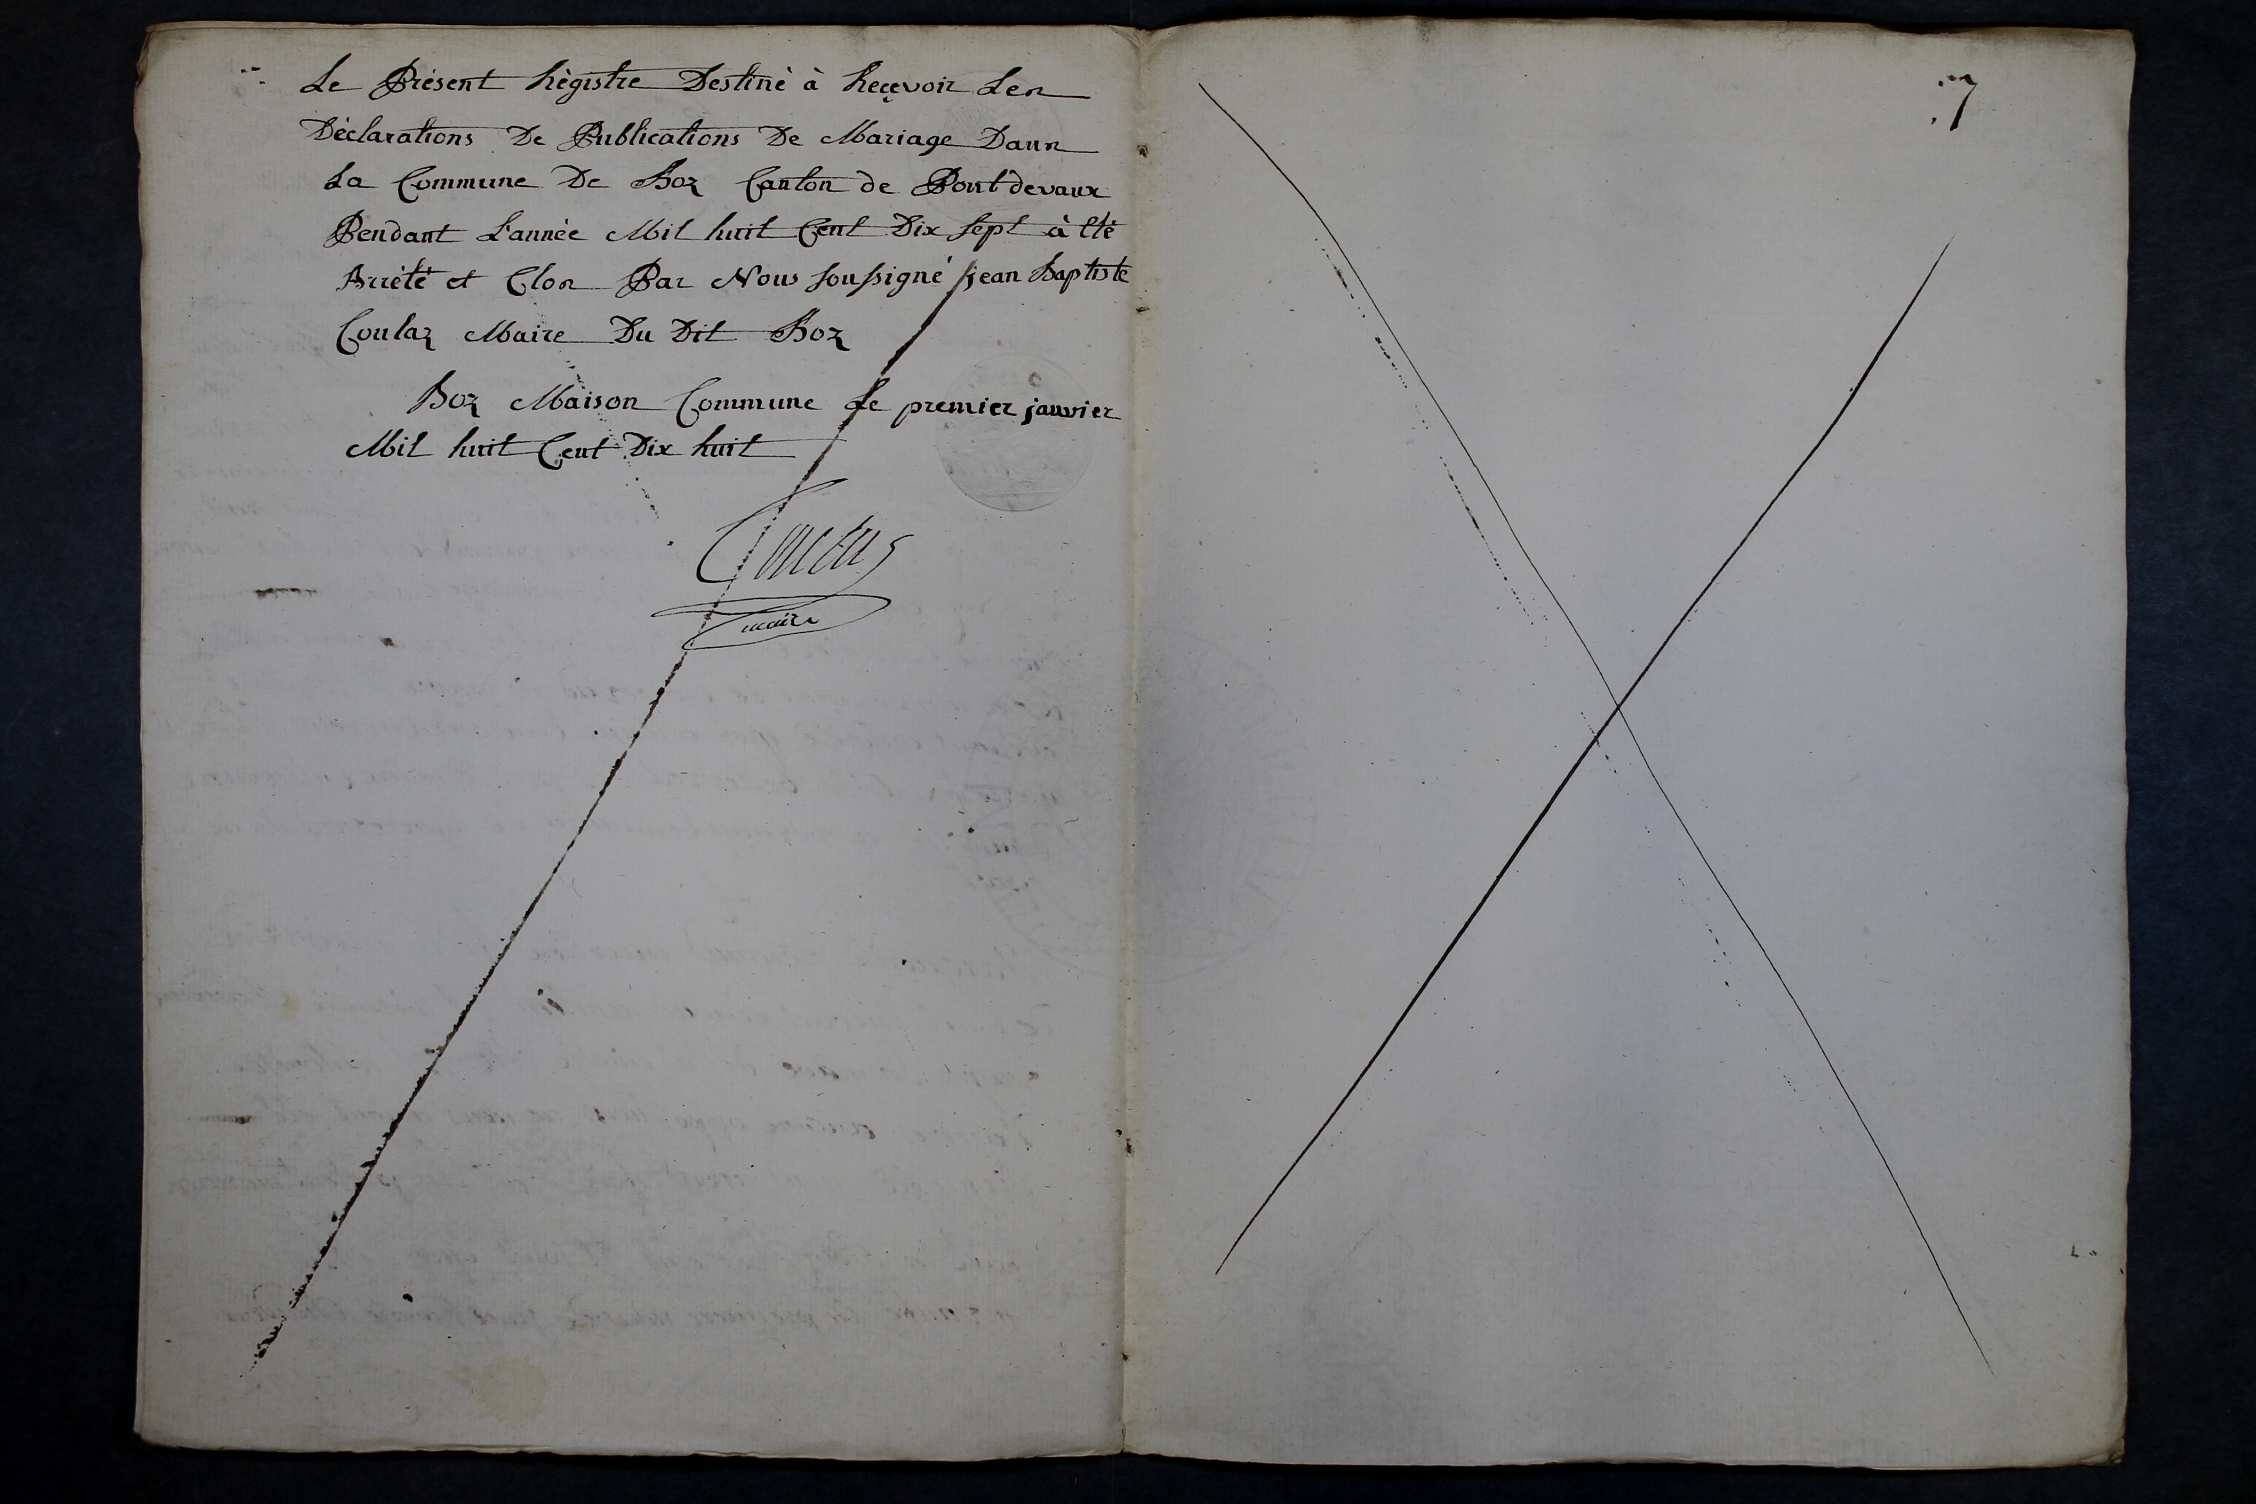 Le Présent Régistre Destiné à Reçevoir Les
Déclarations De Publications De Mariage Dans
La Commune De Boz Canton de Pontdevaux
Pendant L'année Mil huit Cent Dix Sept à Eté
Arrêté et Clos Par Nous Soussigné jean Baptiste
Coulaz Maire Du Dit Boz
Boz Maison Commune Le premier janvier
Mil huit Cent Dix huit
maire
7